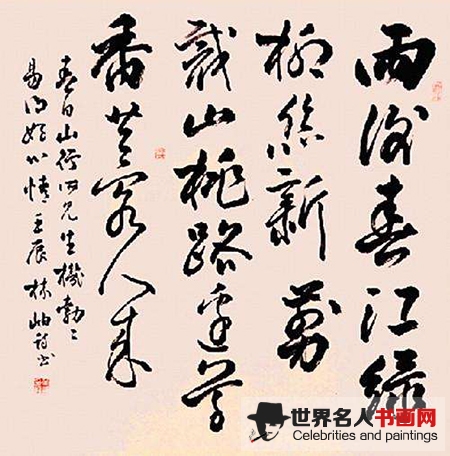 雨後春江綠
柳絲新剪
裁山桃路邊
香客人來
春日山行所見生機勃々
易得好心情壬辰林岫詩書
世界名人书画网
Celebrities and paintings